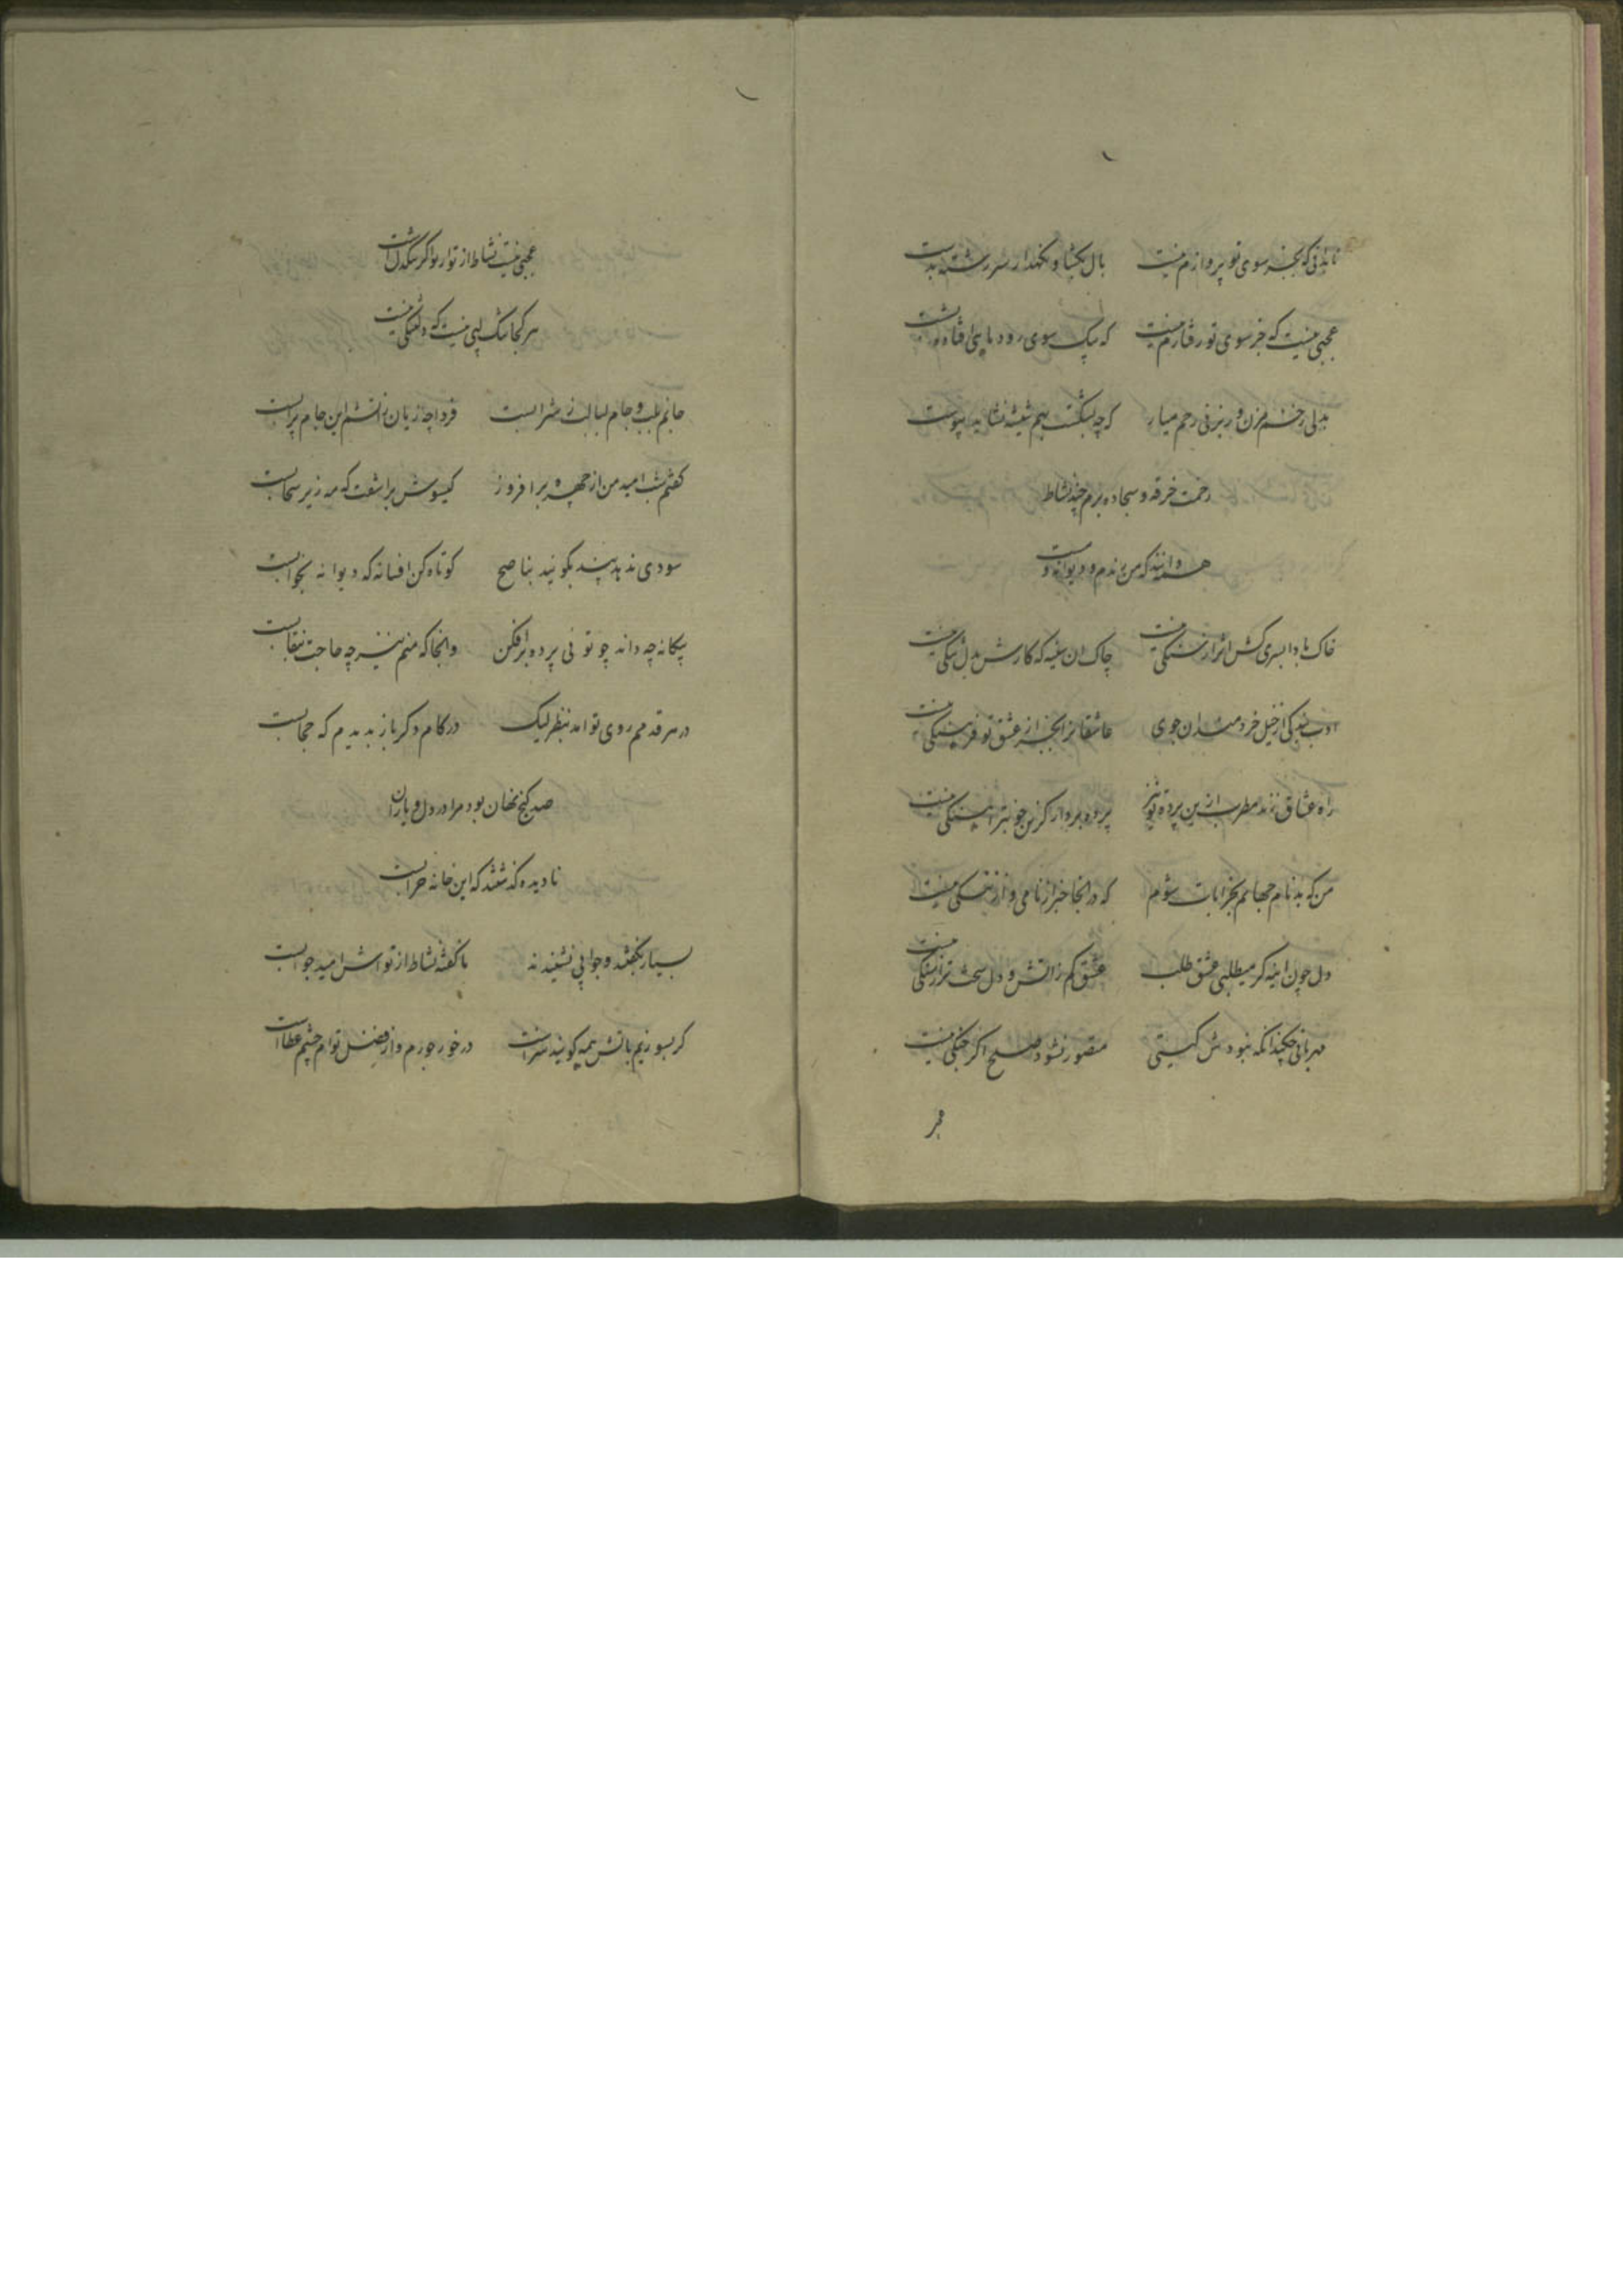 تا بدانی که بجز سوی تو پروازم نیست بال بکشا و نکهدار سر رشته بدست
عجبی نیست که جز سوی تو رفتارم نیست که سوی رود ماهی
بدلی زخم مزن ور بزنی رحم میار کرچه بشکست بهم شیشه نشاید پیوست
رخت خرقه و سجاده برم چند نشاط
همه دانند که من رندم و دیوانه و مست
خاک بادا بسری کش اثر از سنکی نیست چاک ان سینه که کارش بدل تنکی نیست
ادب بندکی از خیل خردمندان جوی عاشقانرا بجز از عشق تو فرهنکی نیست
راه عشاق زند مطرب ازین پرده تو نیز پرده بردار کزین خوبتر اهنکی نیست
من که بدنام جهانم بخرابات شوم که در انجا خبر از نامی و از ننکی نیست
دل چون اینه کر میطلبی عشق طلب عشق کم زاتش و دل سخت تر از سنکی نیست
مهربانی چکند انکه نبودش کینی متصور نشود صلح اکر جنکی نیست
عجبی نیست نشاط از تو ار سنکدل است
هر کجا تنک لبی نیست که دلتنکی نیست
جانم بلب و جام لبالب ز شرابست فردا چه زیان زاتشم این جام پر ابست
کفتم شب امید من از چهره برافروز کیسوش براشفت که مه زیر سحابست
سودی ندهد پند بکوئید بناصح کوتاه کن افسانه که دیوانه بخوابست
بیکانه چه داند چو توئی پرده برافکن وانجا که منم نیز چه حاجت بنقابست
در هر قدمم روی تو امد بنظر لیک در کام دکر باز بدیدم که حجابست
صد کنج نهان بود مرا در دل و یاران
نادیده کذشتند که این خانه خرابست
بسیار بکفتند و جوابی نشنیدند ناکفته نشاط از تواش امید جوابست
کر بسوزیم باتش همه کویند سزاست در خور جورم و از فضل توام چشم عطاست